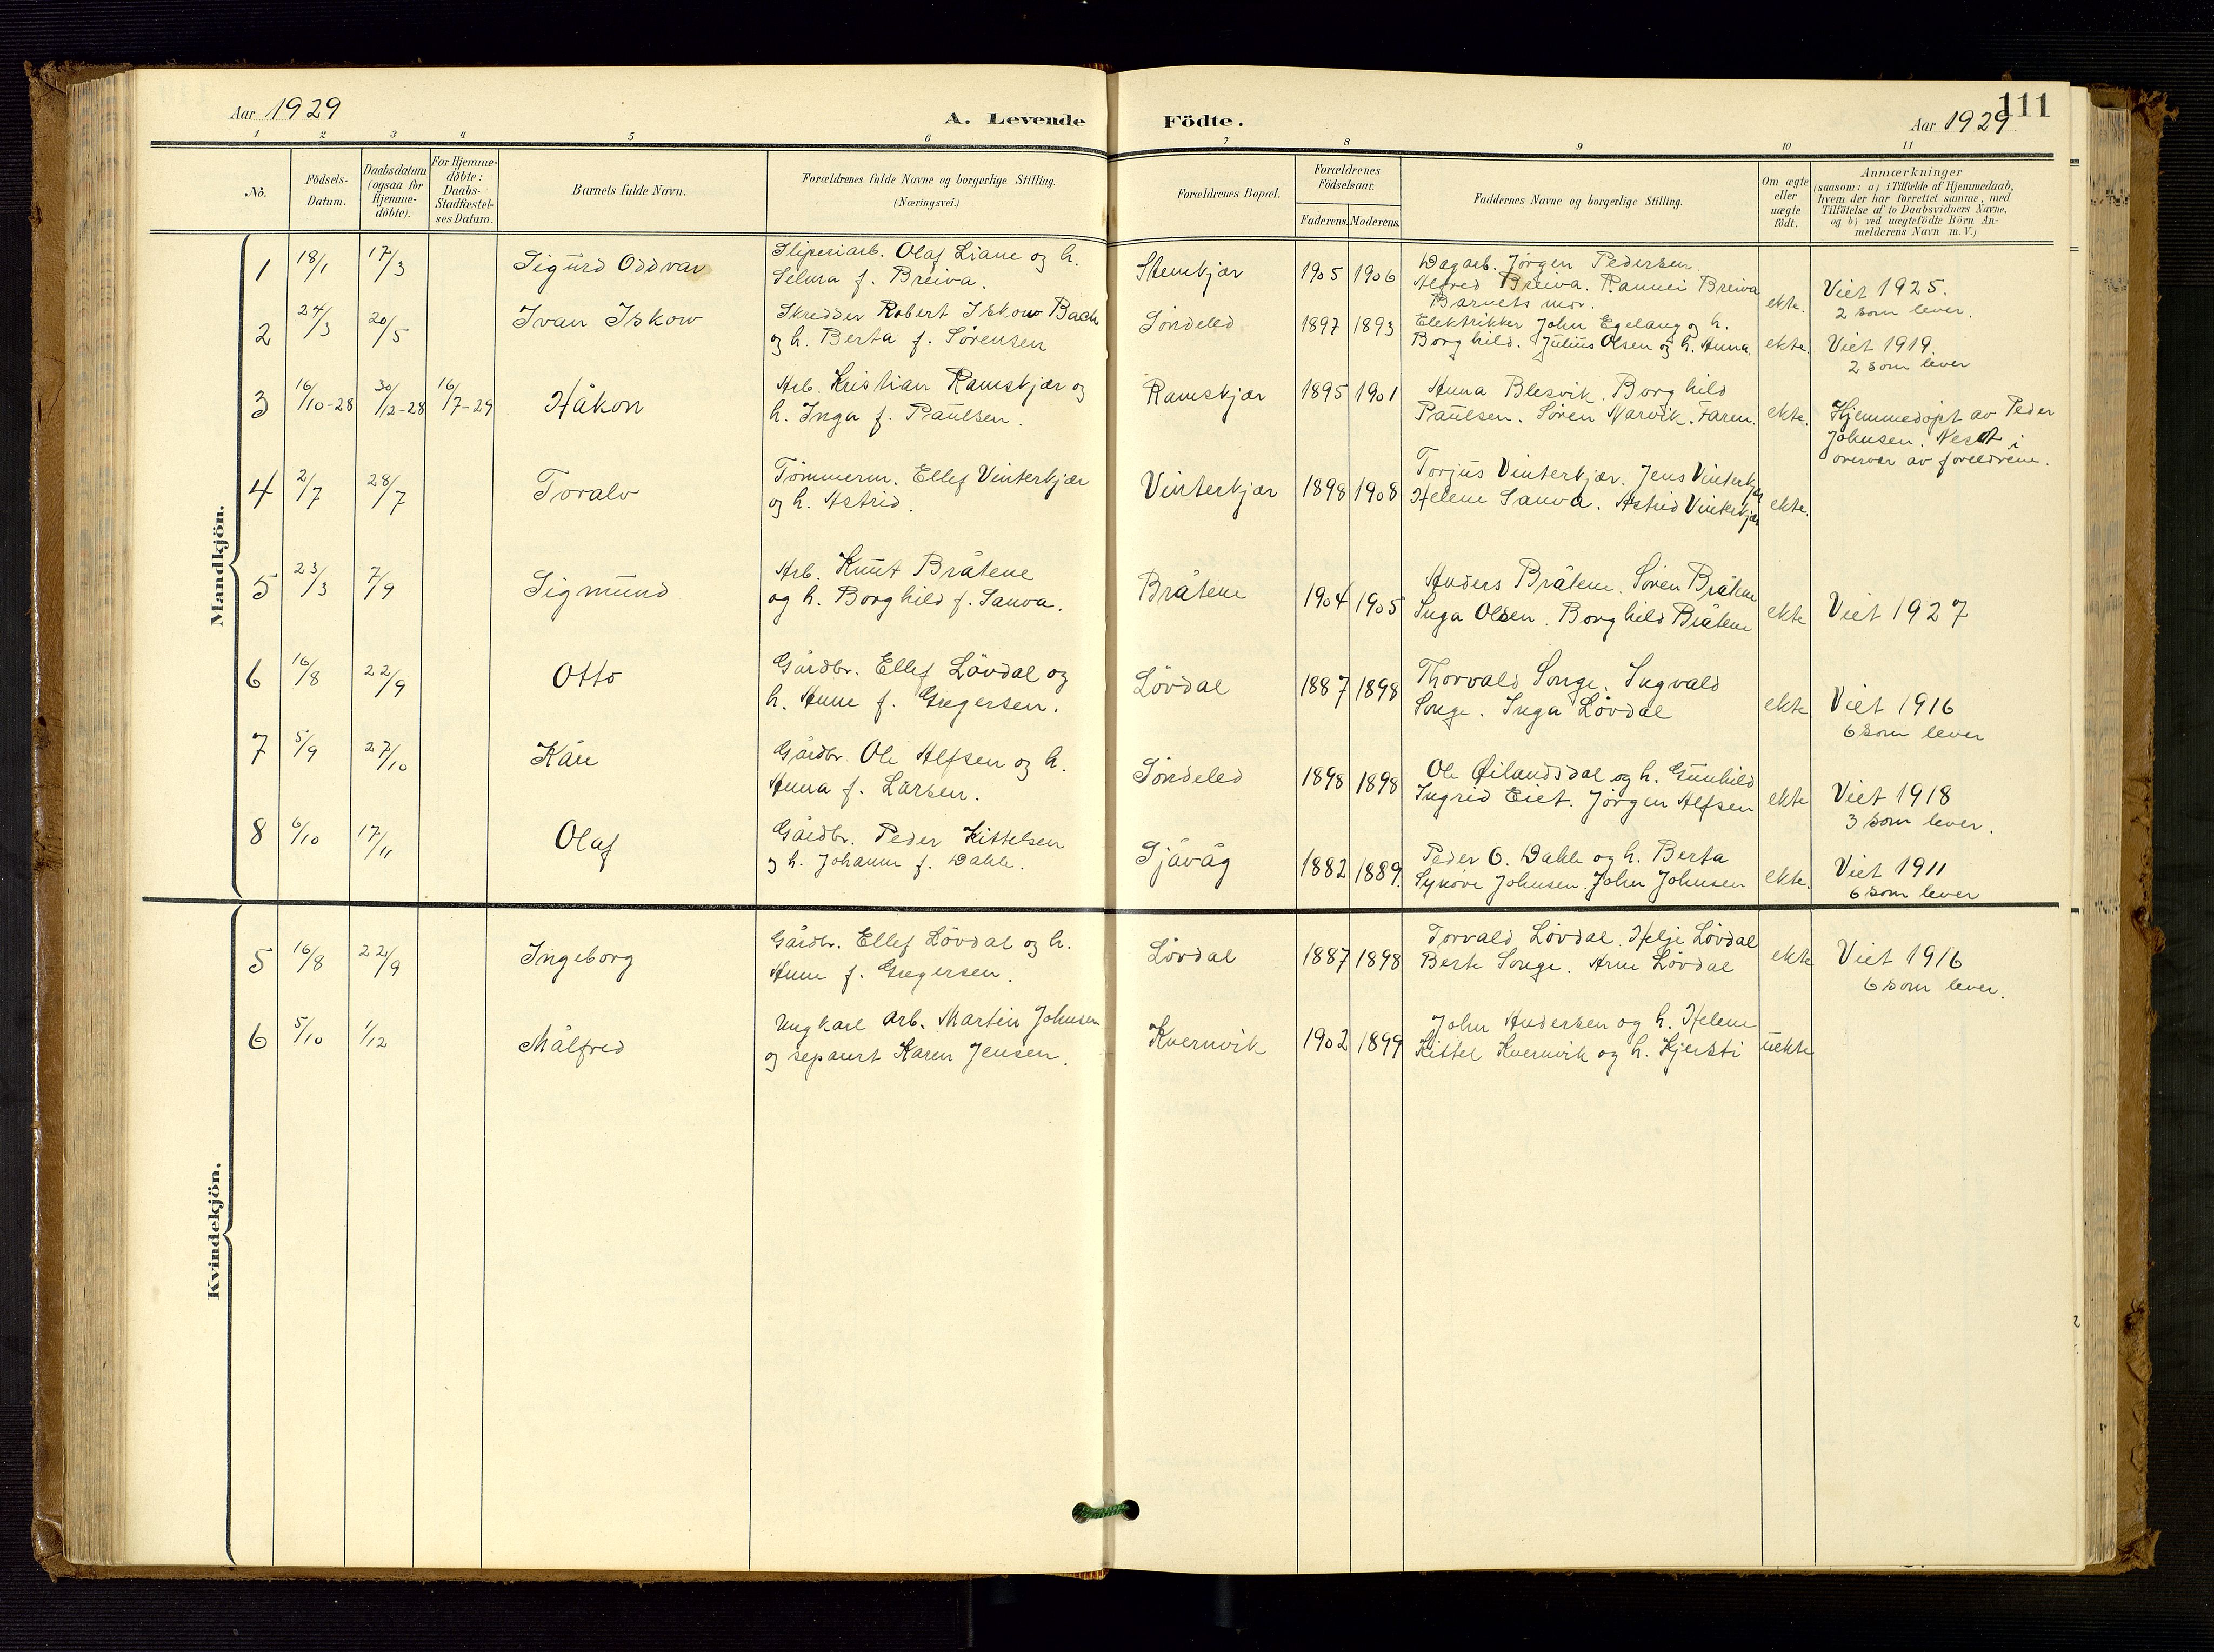 Aar 1929
A. Levende Födte.
111
Aar 1929
1 2 3 4 5 6 7 8 9 10 11
No.
Födsels-Datum.
Daabsdatum (ogsaa for Hjemme-döbte).
For Hjemme-döbte: Daabs-Stadfæstel-ses Datum.
Barnets fulde Navn.
Forældrenes fulde Navne og borgerlige Stilling.
(Næringsvei.)
Forældrenes Bopæl.
Forældrenes Födselsaar.
Faderens. Moderens.
Faddernes Navne og borgerlige Stilling.
Om ægte eller uægte födt.
Anmærkninger
(saasom: a) i Tilfælde af Hjemmedaab,
hvem der har forrettet samme, med
Tilföielse af to Daabsvidners Navne,
og b) ved uægtefödte Börn An-
melderens Navn m. V.)
Mandkjön.
1 18/1 17/3 Sigurd Oddvar
Sliperiarb. Olaf Liane og h.
Selma f. Breiva.
Stemkjær 1905 1906
Dagarb. Jörgen Pedersen.
Alfred Breiva. Rannei Breiva
Barnets mor.
ekte.
Viet 1925.
2 som lever.
2 24/3 20/5 Ivan Iskow
Skredder Robert Iskow Bach
og h. Berta f. Sörensen
Söndeled 1897 1893
Elektrikker John Egelang og h.
Borghild. Julius Olsen og h. Anna.
ekte.
Viet 1919.
2 som lever
3 16/10-28 30/12-28 16/7-29 Håkon
Arb. Kristian Ramskjær og
h. Inga f. Paulsen.
Ramskjær 1895 1901
Anna Blesvik. Borghild
Paulsen. Sören Narvik. Faren.
ekte.
Hjemmedöpt av Peder
Johnsen. Nes i
overvær av foreldrene.
4 2/7 28/7 Toralv
Tömmerm. Ellef Vinterkjær
og h. Astrid.
Vinterkjær 1898 1908
Torjus Vinterkjær. Jens Vinterkjær
Helene Sanva. Astrid Vinterkjær
ekte.
5 23/3 7/9 Sigmund
Arb. Knut Bråtene
og h. Borghild f. Sanva.
Bråtene 1904 1905
Anders Bråtene. Sören Bråtene
Inga Olsen. Borghild Bråtene
ekte
Viet 1927
6 16/8 22/9 Otto
Gårdbr. Ellef Lövdal og
h. Anne f. Gregersen.
Lövdal 1887 1898
Thorvald Songe. Ingvald
Songe. Inga Lövdal
ekte
Viet 1916
6 som lever
7 5/9 27/10 Kåre
Gårdbr. Ole Alfsen og h.
Anna f. Larsen.
Söndeled 1898 1898
Ole Øilandsdal og h. Gunhild
Ingrid Eiet. Jörgen Alfsen
ekte
Viet 1918
3 som lever.
8 6/10 17/11 Olaf
Gårdbr. Peder Kittelsen
og h. Johanne f. Dahle.
Sjåvåg 1882 1889.
Peder O. Dahle og h. Berta
Synöve Johnsen. John Johnsen
ekte.
Viet 1911
6 som lever
Kvindekjön.
5 16/8 22/9 Ingeborg
Gårdbr. Ellef Lövdal og h.
Anne f. Gregersen.
Lövdal 1887 1898
Torvald Lövdal. Helje Lövdal
Berte Songe. Arne Lövdal
ekte
Viet 1916
6 som lever.
6 5/10 1/12 Målfred
Ungkarl arb. Martin Johnsen
og separert Karen Jensen.
Kvernvik 1902 1899
John Andersen og h. Helene
Kittel Kvernvik og h. Kjersti
uekte